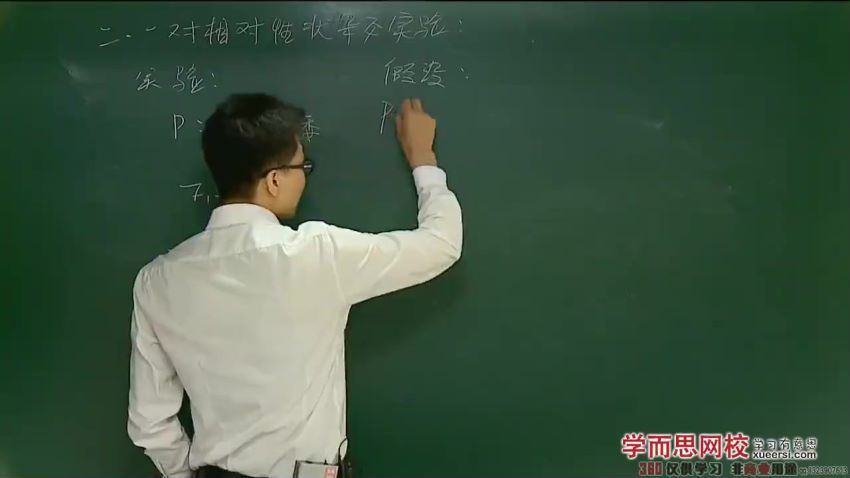 二.一对相对性状杂交实验:
实验:
假设:
P:
P
F₁
学而思网校
学习有意思
xueersi.com
360仅供学习 非商业用途